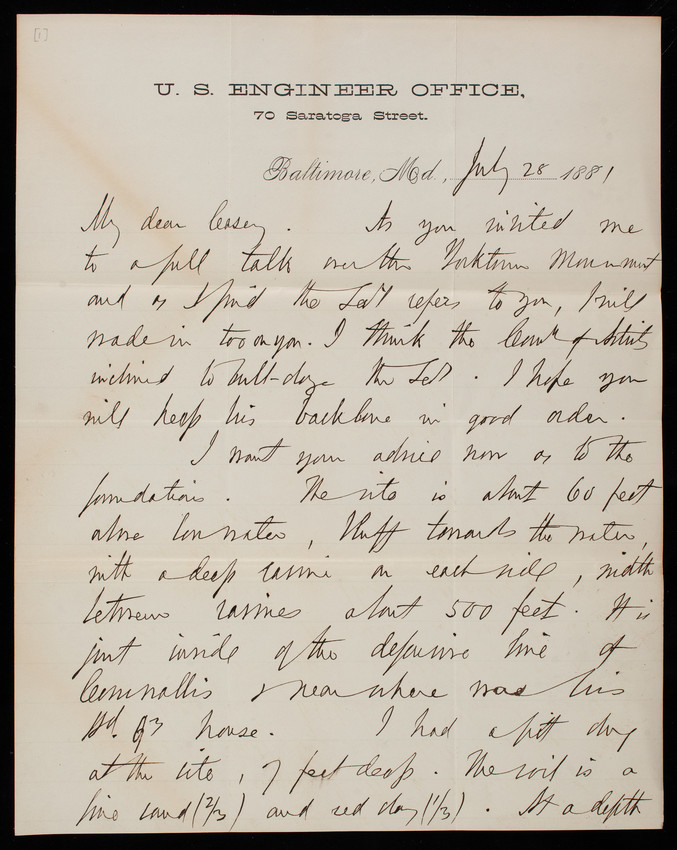 [1]
U. S. ENGINEER OFFICE,
70 Saratoga Street.
Baltimore, Md., July 28 1881
My dear Casey. As you invited me
to a full talk over the Yorktown Monument
and as I find the Secy refers to you, I will
wade in too on you. I think the Comn of Artists
inclined to bull-doze the Secy. I hope you
will keep his backbone in good order.
I want your advice now as to the
foundations. The site is about 60 feet
above low water, bluff towards the water,
with a deep ravine on each side, width
between ravines about 500 feet. It is
just inside of the defensive line of
Cornwallis & near where was his
Hd. Qrs house. I had a pit dug
at the site, 7 feet deep. The soil is a
fine sand (2/3) and red clay (1/3). At a depth